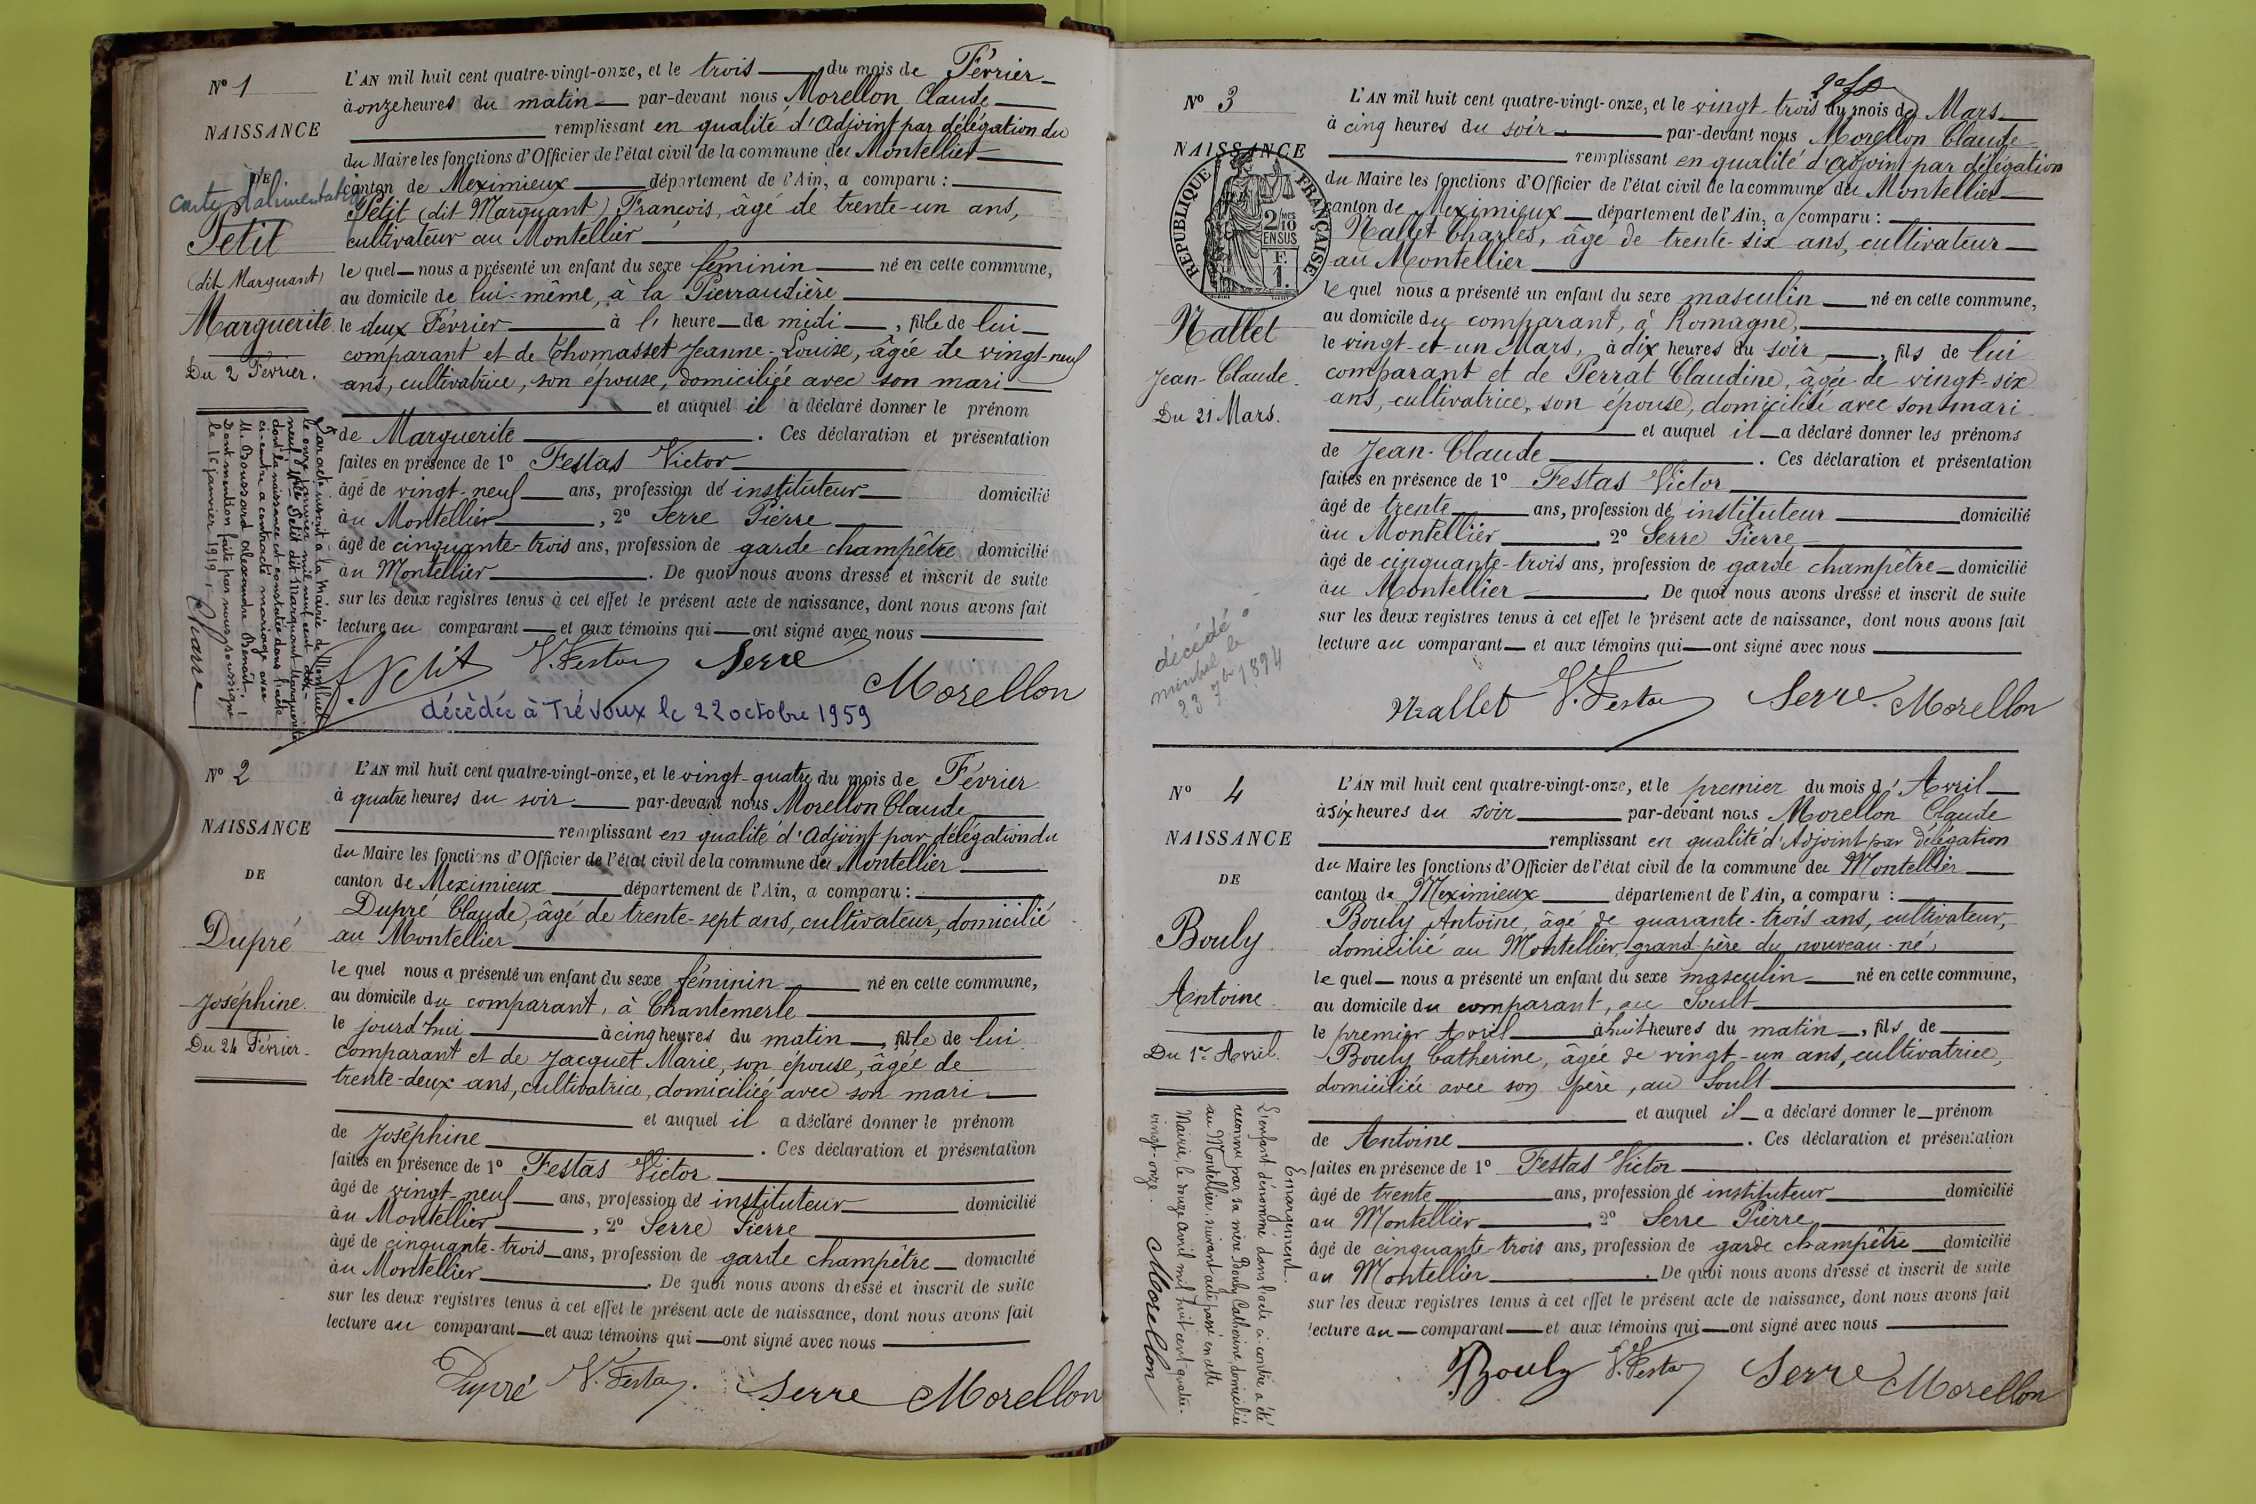 N° 1
NAISSANCE
DE
carte d'alimentation
Petit
(dit Marguant)
Marguerite
Du 2 Février.
L'AN mil huit cent quatre-vingt-onze, et le trois du mois de Février
à onze heures du matin par-devant nous Morellon Claude
remplissant en qualité d'Adjoint par délégation du
du Maire les fonctions d'Officier de l'état civil de la commune du Montellier
canton de Meximieux département de l'Ain, a comparu :
Petit (dit Marguant) François, âgé de trente-un ans,
cultivateur au Montellier
le quel nous a présenté un enfant du sexe féminin né en cette commune,
au domicile de lui-même, à la Pierraudière
le deux Février à l' heure de midi, fille de lui
comparant et de Thomasset Jeanne-Louise, âgée de vingt-neuf
ans, cultivatrice, son épouse, domiciliée avec son mari
et auquel il a déclaré donner le prénom
de Marguerite. Ces déclaration et présentation
faites en présence de 1° Festas Victor
âgé de vingt-neuf ans, profession de instituteur domicilié
au Montellier, 2° Serre Pierre
âgé de cinquante-trois ans, profession de garde champêtre domicilié
au Montellier. De quoi nous avons dressé et inscrit de suite
sur les deux registres tenus à cet effet le présent acte de naissance, dont nous avons fait
lecture au comparant et aux témoins qui ont signé avec nous
f. Petit V. Festas Serre Morellon
décèdée à Trévoux le 22 octobre 1959
Par acte suscrit à la Mairie de Montluel
le onze janvier mil neuf cent dix-
neuf, Mlle Petit dit Marguant Marguerite
dont la naissance est constatée dans l'acte
ci-contre a contracté mariage avec
M. Boussard Alexandre Benoit.
Dont mention faite par nous soussigné
le 16 janvier 1919.
Charre
N° 2
NAISSANCE
DE
Dupré
Joséphine.
Du 24 Février.
L'AN mil huit cent quatre-vingt-onze, et le vingt-quatre du mois de Février
à quatre heures du soir par-devant nous Morellon Claude
remplissant en qualité d'Adjoint par délégation du
du Maire les fonctions d'Officier de l'état civil de la commune du Montellier
canton de Meximieux département de l'Ain, a comparu :
Dupré Claude, âgé de trente-sept ans, cultivateur, domicilié
au Montellier
le quel nous a présenté un enfant du sexe féminin né en cette commune,
au domicile du comparant, à Chantemerle
le jourd'hui à cinq heures du matin, fille de lui
comparant et de Jacquet Marie, son épouse, âgée de
trente-deux ans, cultivatrice, domiciliée avec son mari
et auquel il a déclaré donner le prénom
de Joséphine. Ces déclaration et présentation
faites en présence de 1° Festas Victor
âgé de vingt-neuf ans, profession de instituteur domicilié
au Montellier, 2° Serre Pierre
âgé de cinquante-trois ans, profession de garde champêtre domicilié
au Montellier. De quoi nous avons dressé et inscrit de suite
sur les deux registres tenus à cet effet le présent acte de naissance, dont nous avons fait
lecture au comparant et aux témoins qui ont signé avec nous
Dupré V. Festas Serre Morellon
N° 3
NAISSANCE
RÉPUBLIQUE FRANÇAISE
2/10
EN SUS
F.
1.
Nallet
Jean-Claude.
Du 21 Mars.
L'AN mil huit cent quatre-vingt-onze, et le vingt-trois du mois de Mars
à cinq heures du soir par-devant nous Morellon Claude
remplissant en qualité d'Adjoint par délégation
du Maire les fonctions d'Officier de l'état civil de la commune du Montellier
canton de Meximieux département de l'Ain, a comparu :
Nallet Charles, âgé de trente-six ans, cultivateur
au Montellier
le quel nous a présenté un enfant du sexe masculin né en cette commune,
au domicile du comparant, à Romagne,
le vingt-et-un Mars, à dix heures du soir, fils de lui
comparant et de Perrat Claudine, âgée de vingt-six
ans, cultivatrice, son épouse, domiciliée avec son mari
et auquel il a déclaré donner les prénoms
de Jean-Claude. Ces déclaration et présentation
faites en présence de 1° Festas Victor
âgé de trente ans, profession de instituteur domicilié
au Montellier 2° Serre Pierre
âgé de cinquante-trois ans, profession de garde champêtre domicilié
au Montellier. De quoi nous avons dressé et inscrit de suite
sur les deux registres tenus à cet effet le présent acte de naissance, dont nous avons fait
lecture au comparant et aux témoins qui ont signé avec nous
décédé à
le
23 7bre 1894
Nallet V. Festas Serre. Morellon
N° 4
NAISSANCE
DE
Bouly
Antoine.
Du 1er Avril.
L'AN mil huit cent quatre-vingt-onze, et le premier du mois d'Avril
à six heures du soir par-devant nous Morellon Claude
remplissant en qualité d'Adjoint par délégation
du Maire les fonctions d'Officier de l'état civil de la commune du Montellier
canton de Meximieux département de l'Ain, a comparu :
Bouly Antoine, âgé de quarante-trois ans, cultivateur,
domicilié au Montellier, grand-père du nouveau-né,
le quel nous a présenté un enfant du sexe masculin né en cette commune,
au domicile du comparant, au Soult
le premier Avril à huit heures du matin, fils de
Bouly Catherine, âgée de vingt-un ans, cultivatrice,
domiciliée avec son père, au Soult
et auquel il a déclaré donner le prénom
de Antoine. Ces déclaration et présentation
faites en présence de 1° Festas Victor
âgé de trente ans, profession de instituteur domicilié
au Montellier 2° Serre Pierre
âgé de cinquante-trois ans, profession de garde champêtre domicilié
au Montellier. De quoi nous avons dressé et inscrit de suite
sur les deux registres tenus à cet effet le présent acte de naissance, dont nous avons fait
lecture au comparant et aux témoins qui ont signé avec nous
Bouly V. Festas Serre Morellon
Emargement.
L'enfant dénommé dans l'acte ci-contre a été
reconnu par sa mère Bouly Catherine, domiciliée
au Montellier, suivant acte passé en cette
Mairie, le douze avril mil huit cent quatre-
vingt-onze.
Morellon